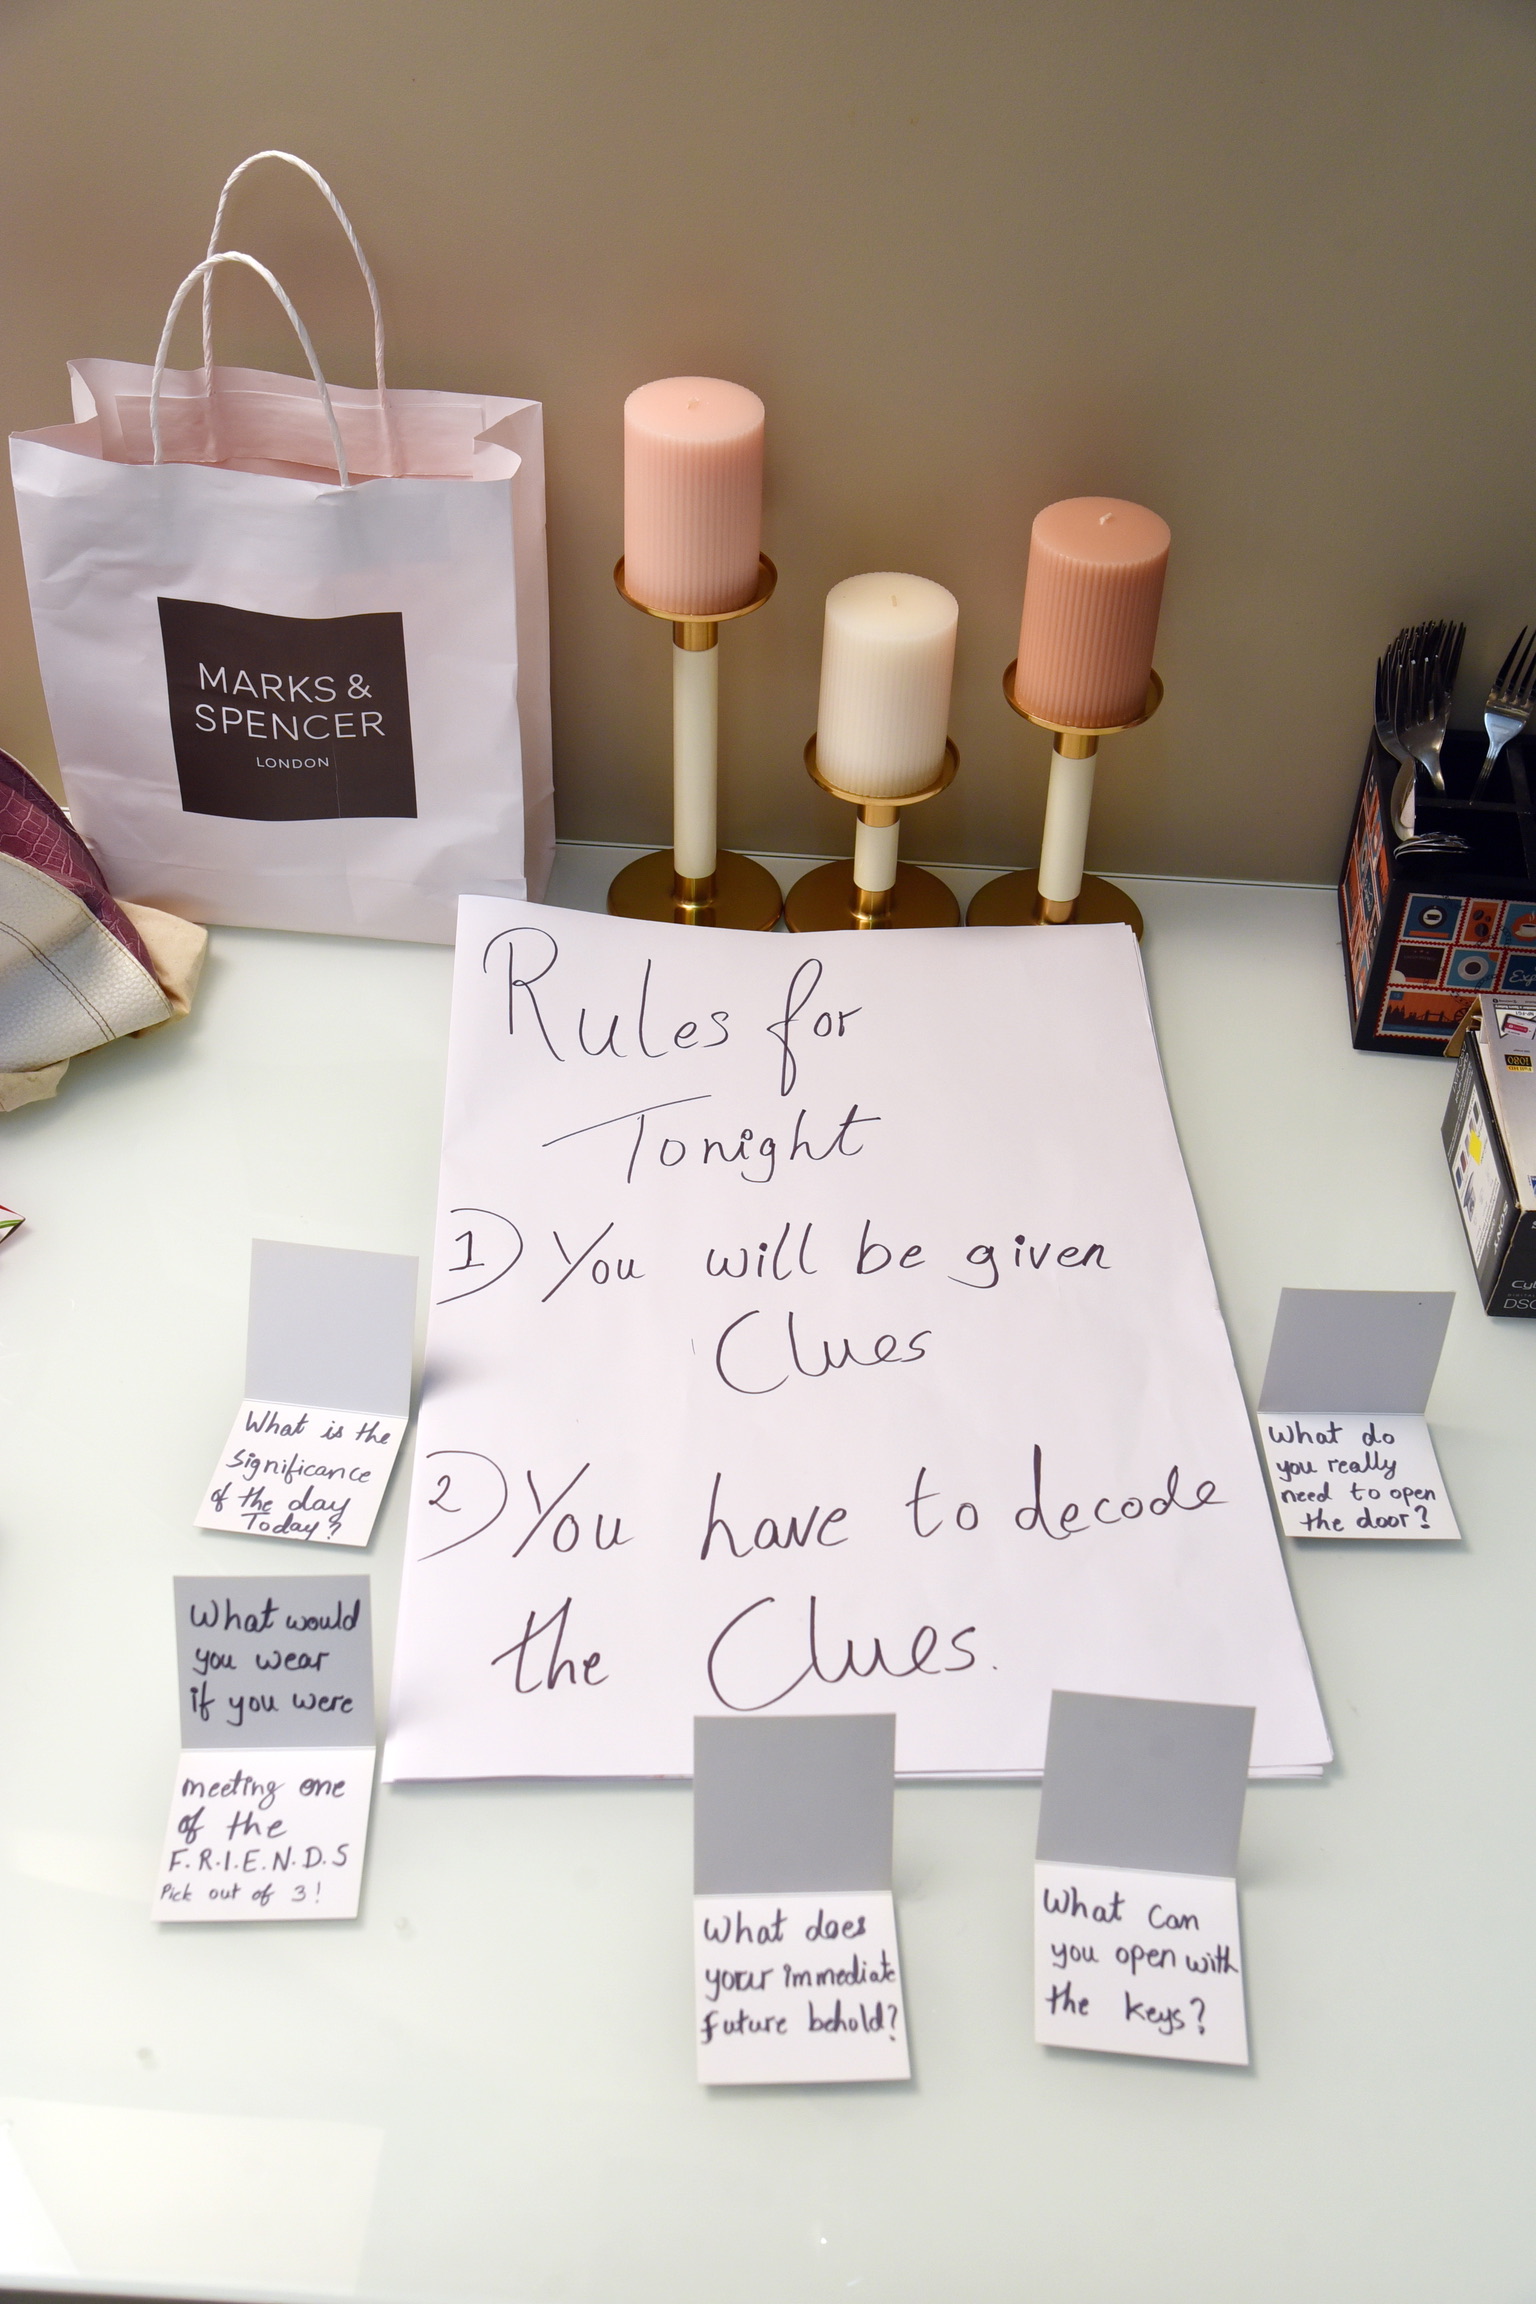 MARKS &
SPENCER
LONDON
Rules for
Tonight
1) You will be given
Clues
2) You have to decode
the Clues.
What is the
significance
of the day
Today?
What would
you wear
if you were
meeting one
of the
F.R.I.E.N.D.S
Pick out of 3!
What does
your immediate
future behold?
What can
you open with
the keys?
What do
you really
need to open
the door?
SONY
1080